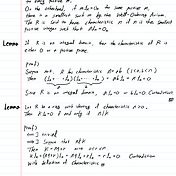 for every positive m.
On the otherhand, if m1R=0R for some positive m,
there is a smallest such m by the Well-Ordering Axiom.
The R is said to have characteristic n if n is the smallest
positive integer such that n1R=0R
Lemma If R is an integral domain, then the characteristic of R is
either 0 or a prime.
proof)
Suppose not, the characteristic n=ab (1<a,b<n)
Since R is an integral domain, a1R=0 or b1R=0. Contradiction
Lemma Let R be a ring with identity of characteristic n>0.
Then k1R=0 if and only if n|k
proof)
⇐) trivial
⇒) Suppose that n∤k
Then k=nq+r with 0<r<n
Contradiction
with definition of characteristic